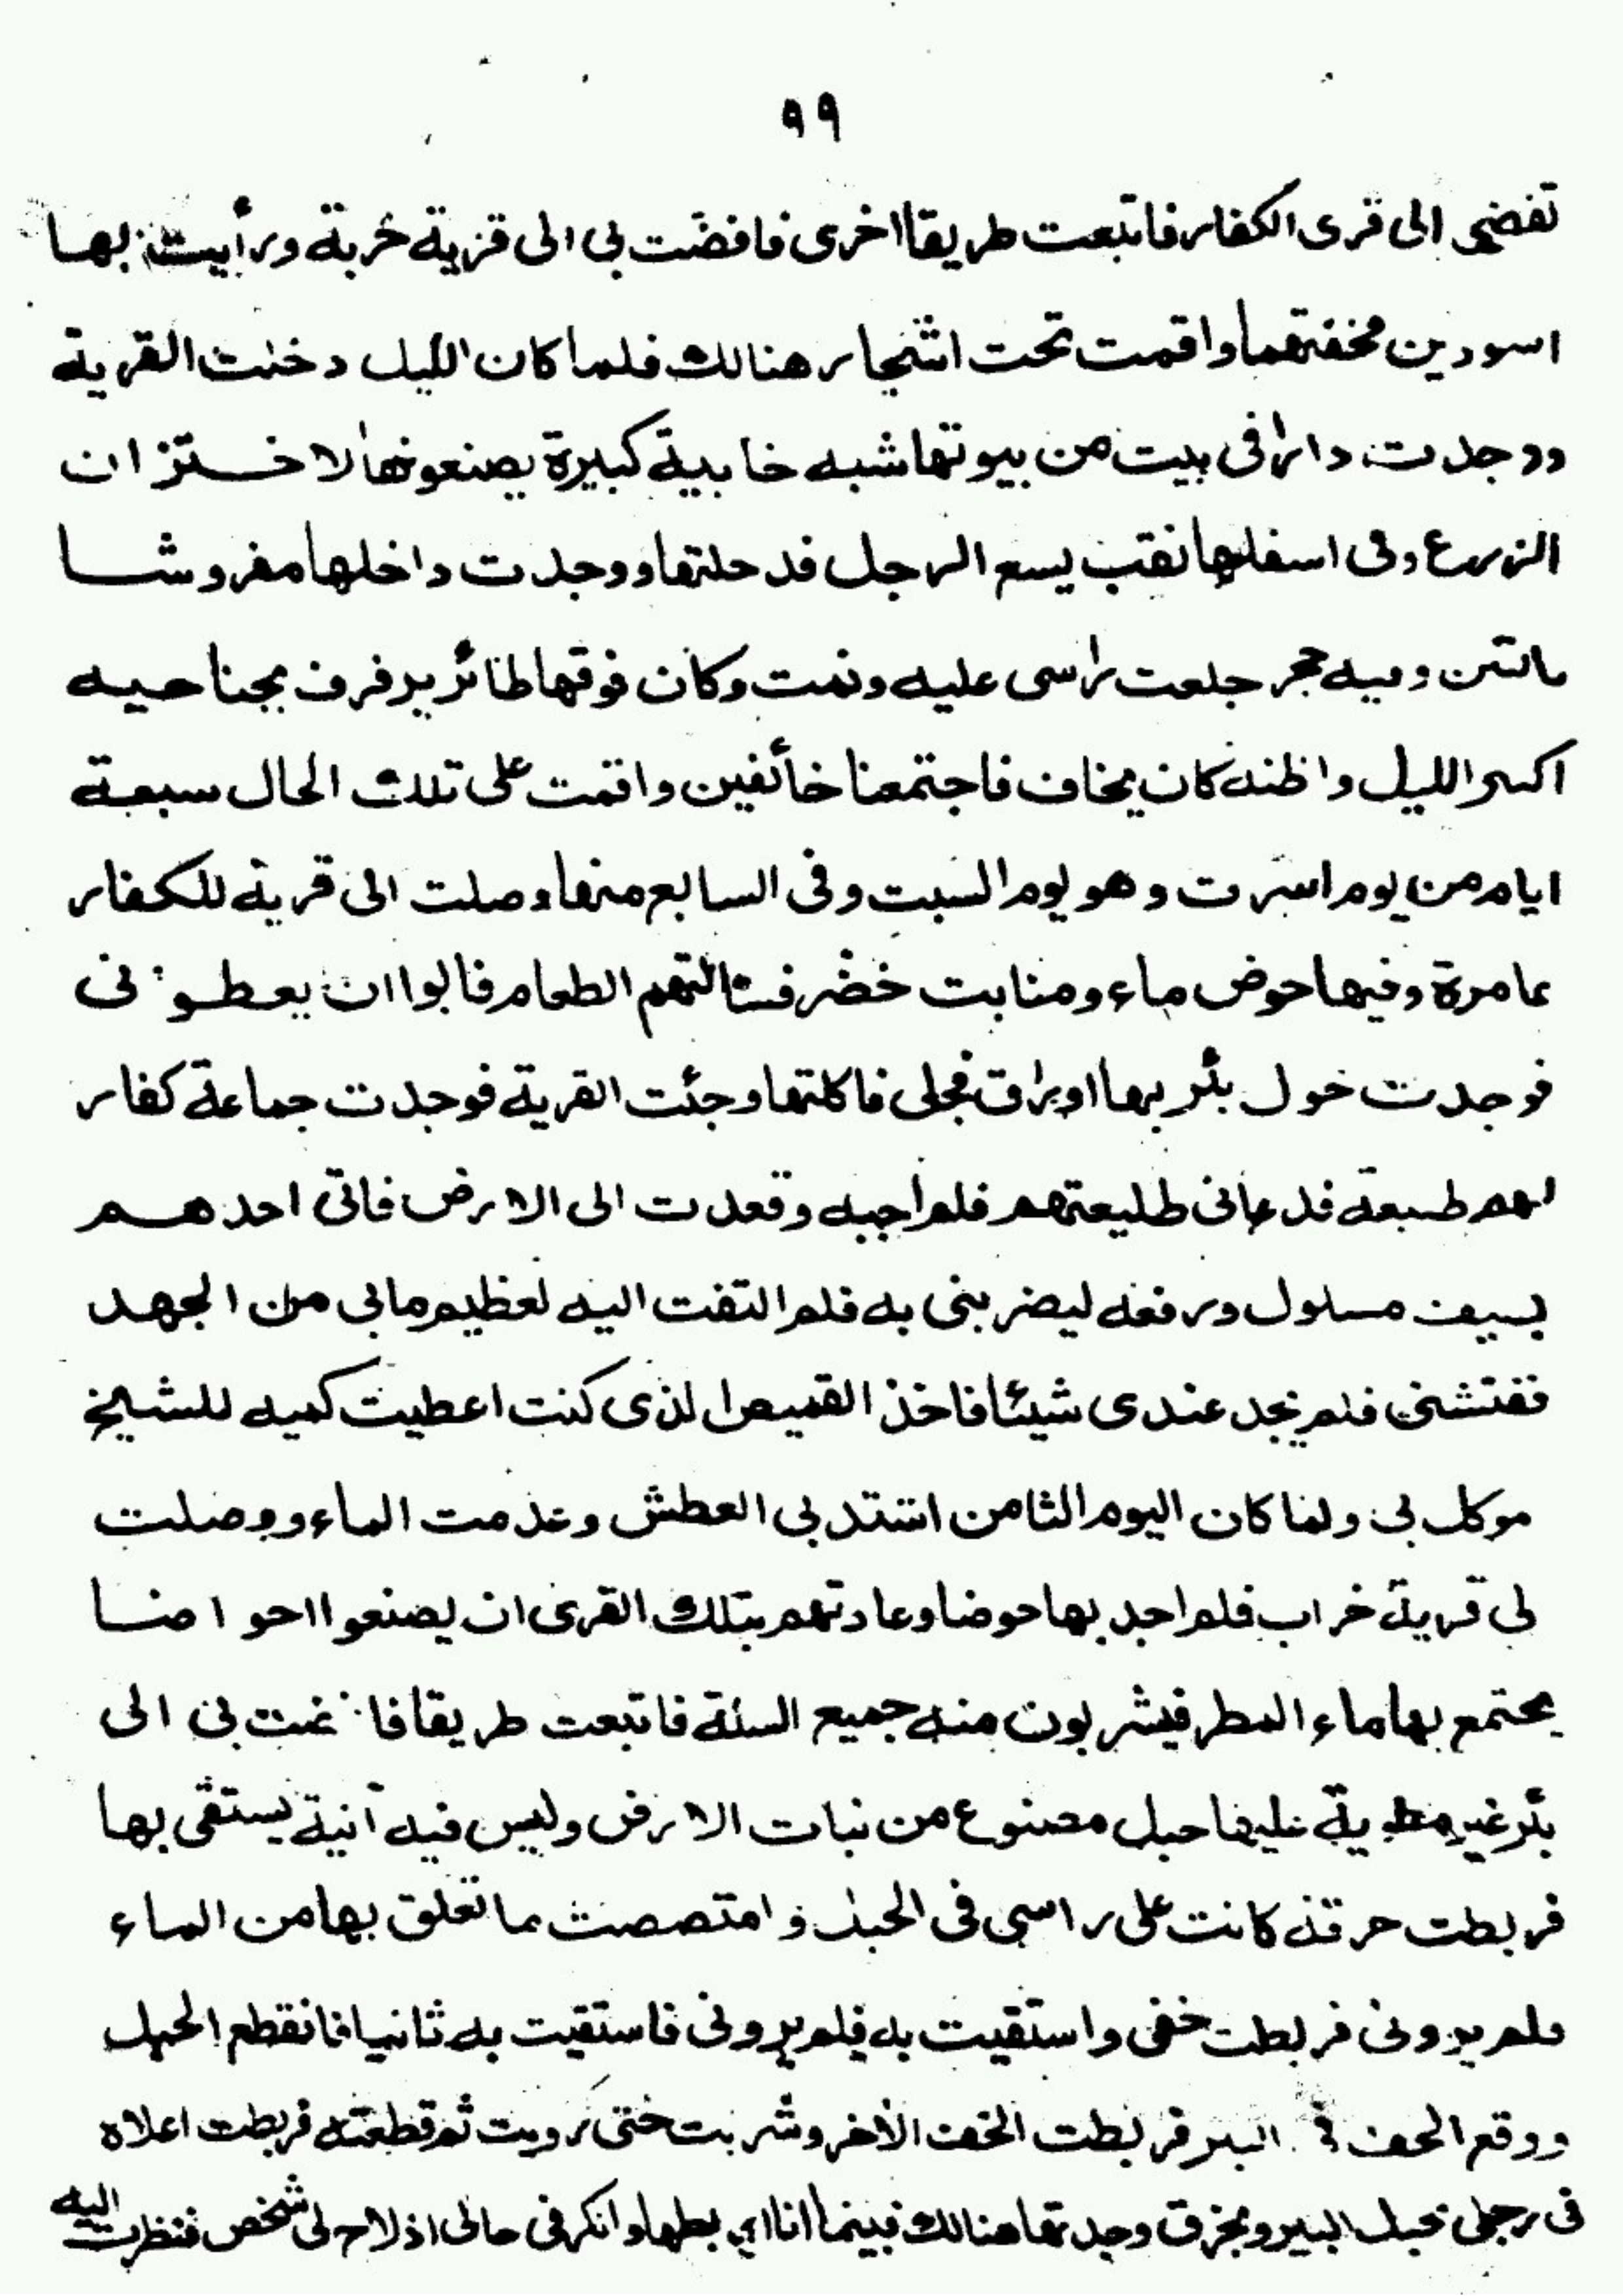 ٩٩
تفضى الى قرى الكفار فاتبعت طريقا اخرى فافضت بى الى قرية خربة ورأيت بها
اسودين فخفتهما واقمت تحت اشجار هنالك فلما كان الليل دخلت القرية
ووجدت دارا فى بيت من بيوتها شبه خابية كبيرة يصنعونها لاختزان
الزرع وفى اسفلها نقب يسع الرجل فدخلتها ووجدت داخلها مفروشا
بالتبن وفيه حجر جلعت راسى عليه ونمت وكان فوقها طائر يرفرف بجناحيه
اكثر الليل واظنه كان يخاف فاجتمعنا خائفين واقمت على تلك الحال سبعة
ايام من يوم اسرت وهو يوم السبت وفى السابع منها وصلت الى قرية للكفار
عامرة وفيها حوض ماء ومنابت خضر فسالتهم الطعام فابوا ان يعطونى
فوجدت حول بئر بها اوراق فجل فاكلتها وجئت القرية فوجدت جماعة كفار
لهم طليعة فدعانى طليعتهم فلم اجبه وقعدت الى الارض فاتى احدهم
بسيف مسلول ورفعه ليضربنى به فلم التفت اليه لعظيم مابى من الجهد
ففتشنى فلم يجد عندى شيئا فاخذ القميص الذى كنت اعطيت كميه للشيخ
موكل بى ولما كان اليوم الثامن اشتد بى العطش وعدمت الماء ووصلت
لى قرية خراب فلم اجد بها حوضا وعادتهم بتلك القرى ان يصنعوا احواضا
يجتمع بها ماء المطر فيشربون منه جميع السنة فاتبعت طريقا فافضت بى الى
بئر غير مطوية عليها حبل مصنوع من نبات الارض وليس فيه آنية يستقى بها
فربطت خرقة كانت على راسى فى الحبل وامتصصت ما تعلق بها من الماء
فلم يرونى فربطت خفى واستقيت به فلم يرونى فاستقيت به ثانيا فانقطع الحبل
ووقع الخف فى البير فربطت الخف الاخر وشربت حتى رويت ثم قطعته فربطت اعلاه
فى رجلى بحبل البير وبخرق وجدتها هنالك فبينما انا اربطها وانكر فى حالى اذ لاح لى شخص فنظرت اليه